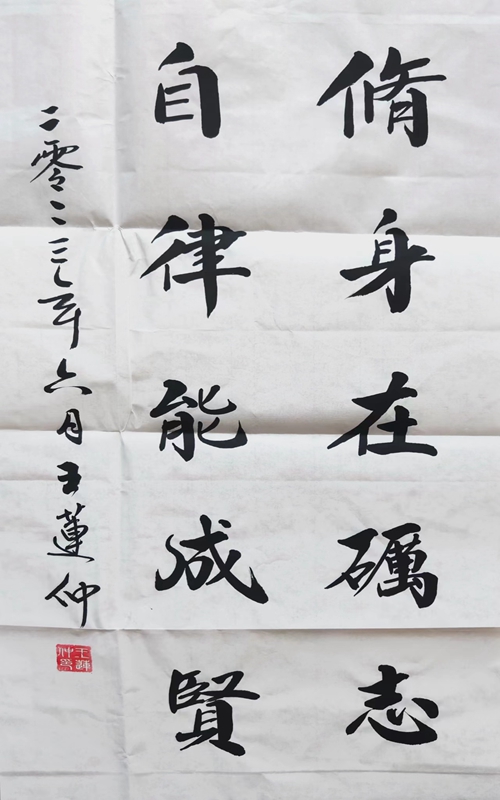 脩身在礪志
自律能成賢
二零二三年六月王蓮仲